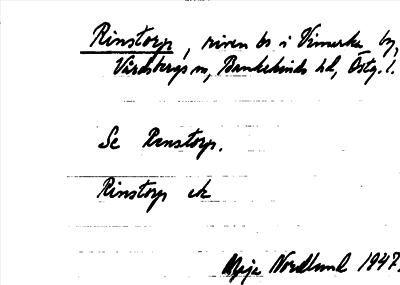 Rinstorp, riven bs i Vimarka by,
Vårdsbergs sn, Bankekinds hd, Östg. l.
Se Rinstorp.
Rinstorp ek
Maja Nordlund 1947.